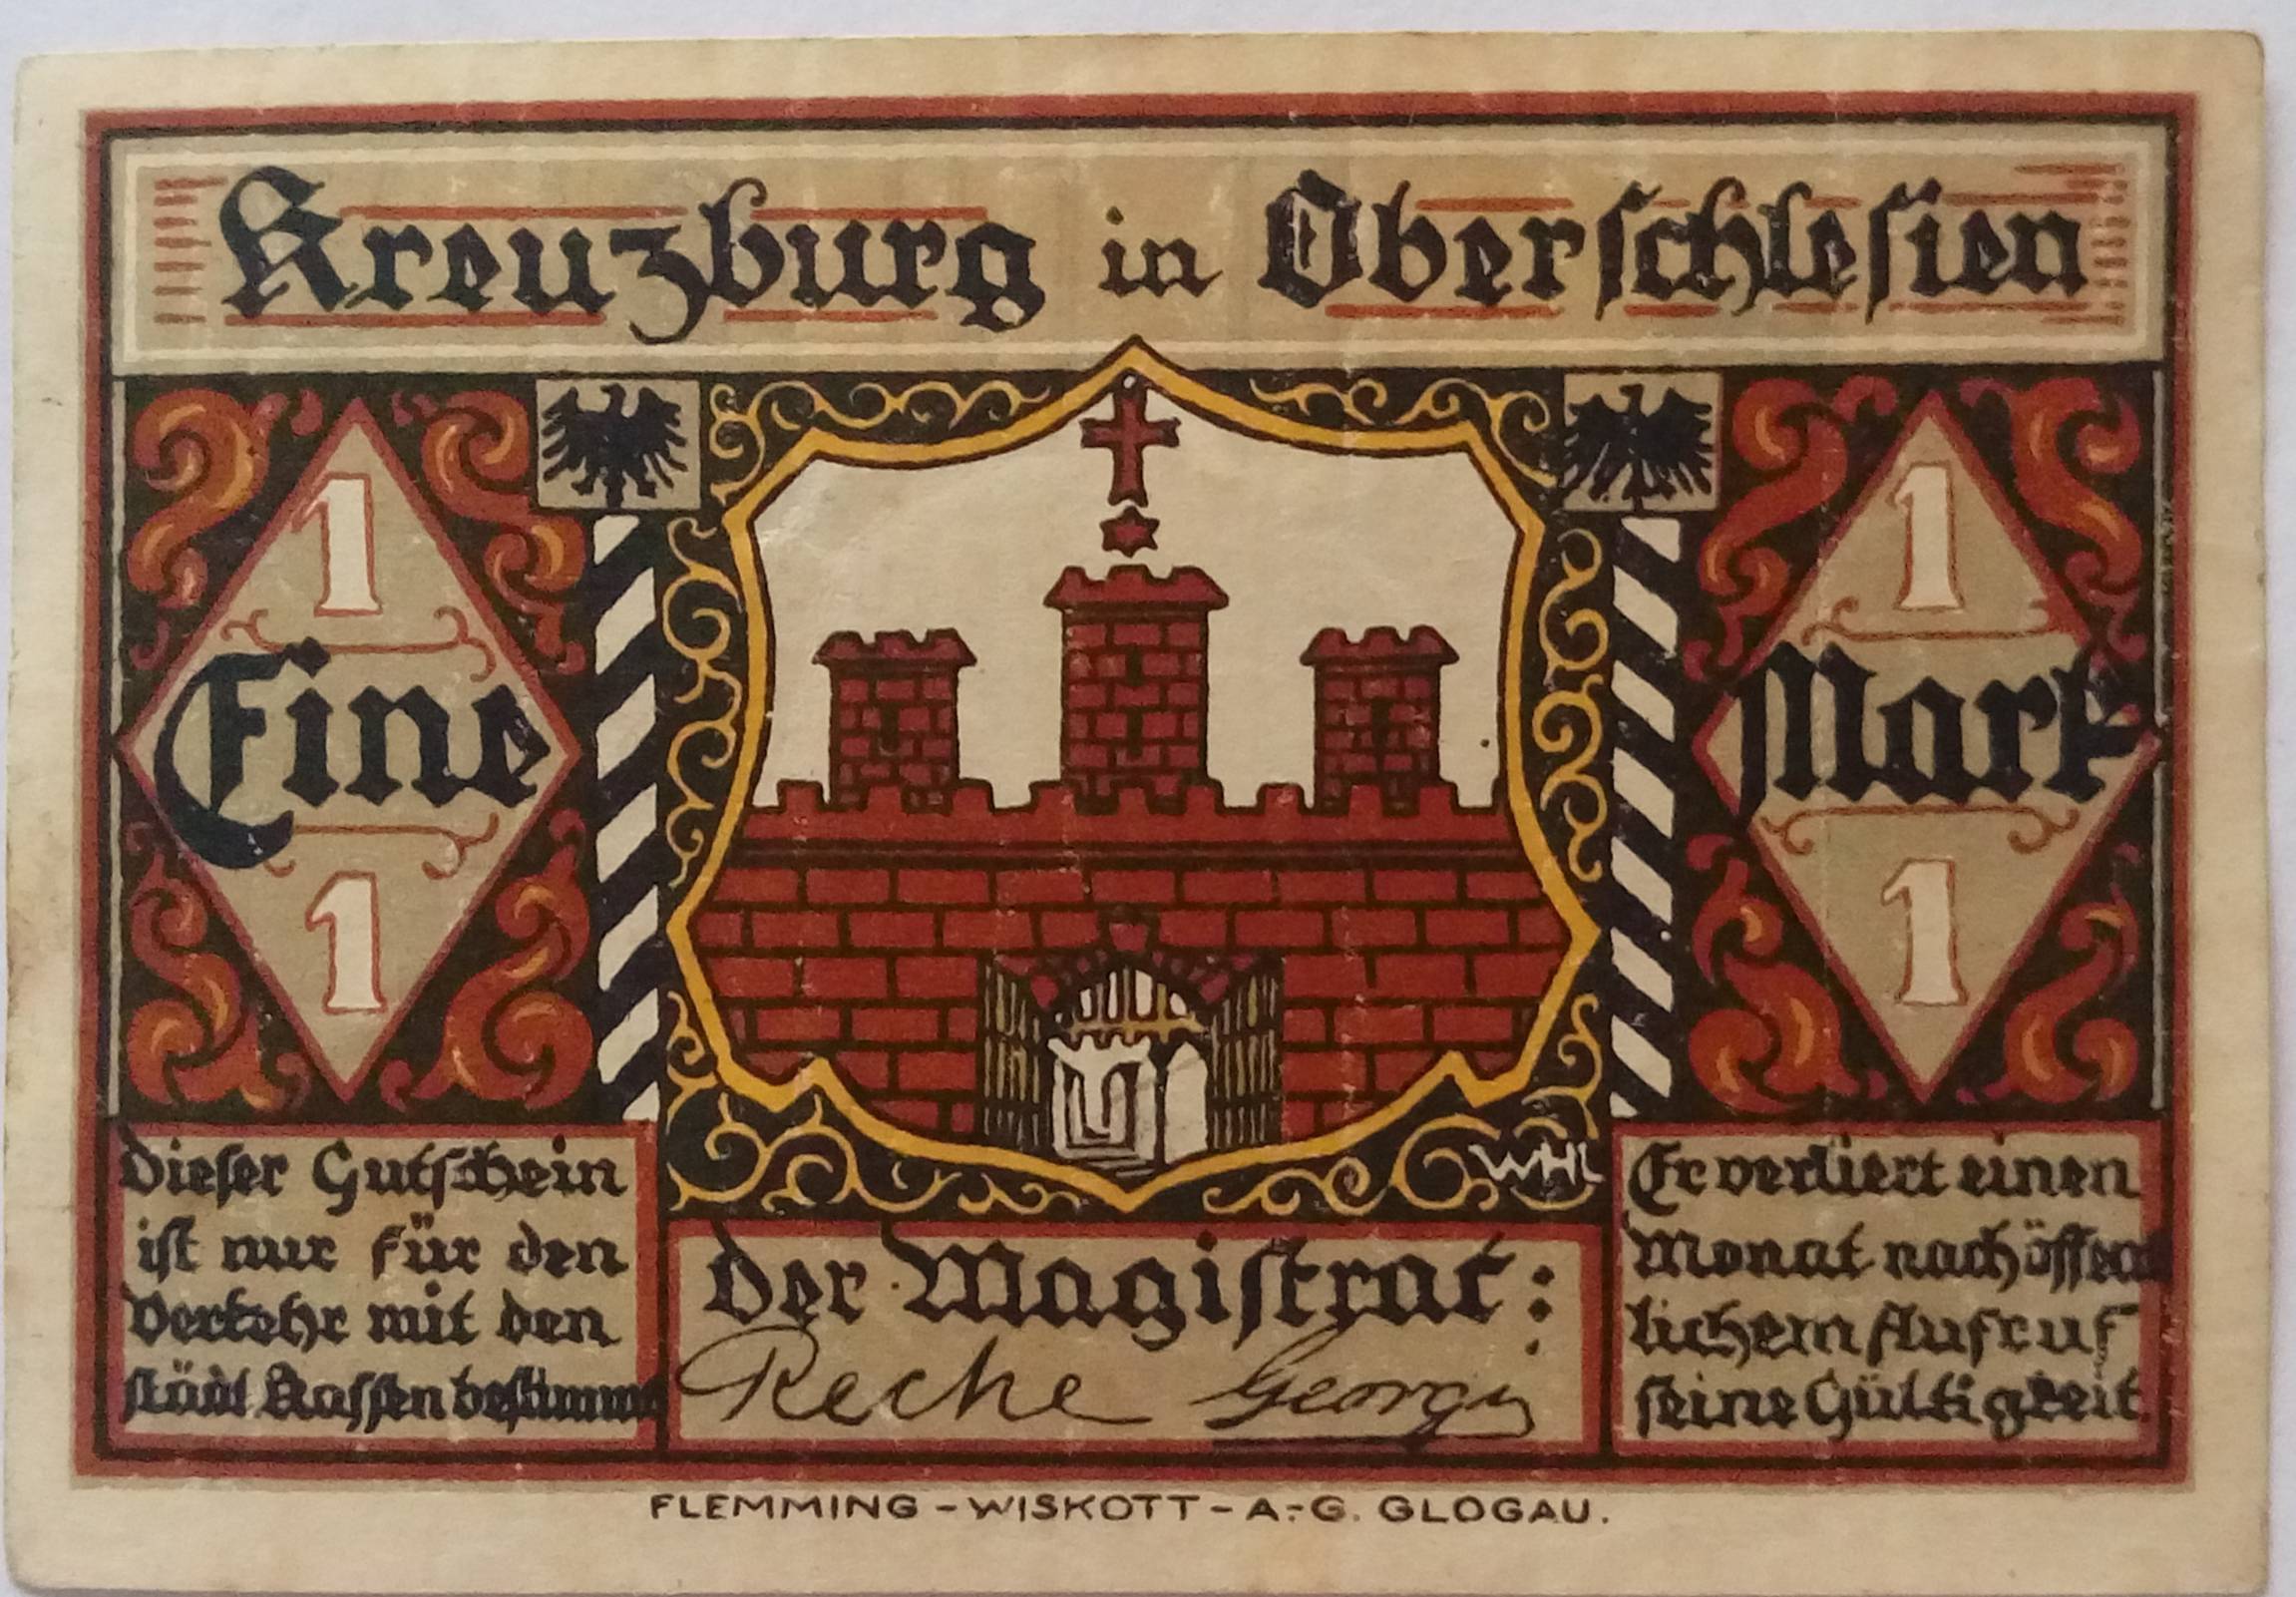 Kreuzburg in Oberschlesien
1
Eine
1
1
Mark
1
WHL
Dieser Gutschein
ist nur für den
Verkehr mit den
städt Kassen bestimmt
der Magistrat:
Reche Georgi
Er verliert einen
Monat nach öffent
lichem Aufruf
seine Gültigkeit
FLEMMING - WISKOTT - A.-G. GLOGAU.